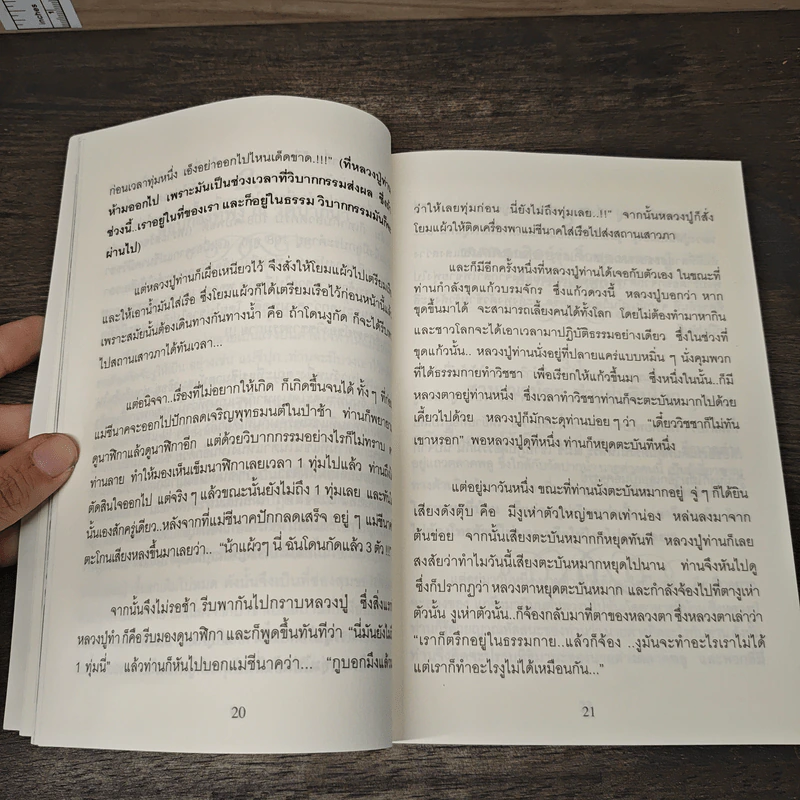 inches
ก่อนเวลาทุ่มหนึ่ง เอ็งอย่าออกไปไหนเด็ดขาด.!!!" (ที่หลวงปู่ท่าน
ห้ามออกไป เพราะมันเป็นช่วงเวลาที่วิบากกรรมส่งผล
ช่วงนี้..เราอยู่ในที่ของเรา และก็อยู่ในธรรม วิบากกรรมมันก็
ผ่านไป)
แต่หลวงปู่ท่านก็เผื่อเหนียวไว้ จึงสั่งให้โยมแผ้วไปเตรียม
และให้เอาน้ำมันใส่เรือ ซึ่งโยมแผ้วก็ได้เตรียมเรือไว้ก่อนหน้านี้
เพราะสมัยนั้นต้องเดินทางกันทางน้ำ คือ ถ้าโดนงูกัด ก็จะได้
ไปสถานเสาวภาได้ทันเวลา...
แต่อนิจจา..เรื่องที่ไม่อยากให้เกิด ก็เกิดขึ้นจนได้ ทั้งๆ ที่
แม่ชีนาคจะออกไปปักกลดเจริญพุทธมนต์ในป่าช้า ท่านก็พยายาม
ดูนาฬิกาแล้วดูนาฬิกาอีก แต่ด้วยวิบากกรรมอย่างไรก็ไม่ทราบ
ท่านลาย ทำให้มองเห็นเข็มนาฬิกาเลยเวลา 1 ทุ่มไปแล้ว ท่าน
ตัดสินใจออกไป แต่จริงๆ แล้วขณะนั้นยังไม่ถึง 1 ทุ่มเลย และ
นั้นเองสักครู่เดียว..หลังจากที่แม่ชีนาคปักกลดเสร็จ อยู่ ๆ แม่ชีนาค
ตะโกนเสียงหลงขึ้นมาเลยว่า.. "น้าแผ้วๆ นี่ ฉันโดนกัดแล้ว 3 ตัว !!"
จากนั้นจึงไม่รอช้า รีบพากันไปกราบหลวงปู่ ซึ่งสิ่งแรก
หลวงปู่ทำ ก็คือ รีบมองดูนาฬิกา และก็พูดขึ้นทันทีว่า "นี่มันยังไม่
1 ทุ่มนี่" แล้วท่านก็หันไปบอกแม่ชีนาคว่า... "กูบอกมึงแล้ว
20
ว่าให้เลยทุ่มก่อน นี่ยังไม่ถึงทุ่มเลย..!!" จากนั้นหลวงปู่ก็สั่ง
โยมแผ้วให้ติดเครื่องพาแม่ชีนาคใส่เรือไปส่งสถานเสาวภา
และก็มีอีกครั้งหนึ่งที่หลวงปู่ท่านได้เจอกับตัวเอง ในขณะที่
ท่านกำลังขุดแก้วบรมจักร ซึ่งแก้วดวงนี้ หลวงปู่บอกว่า หาก
ขุดขึ้นมาได้ จะสามารถเลี้ยงคนได้ทั้งโลก โดยไม่ต้องทำมาหากิน
และชาวโลกจะได้เอาเวลามาปฏิบัติธรรมอย่างเดียว ซึ่งในช่วงที่
ขุดแก้วนั้น.. หลวงปู่ท่านนั่งอยู่ที่ปลายแคร่แบบหมิ่น ๆ นั่งคุมพวก
ที่ได้ธรรมกายทำวิชชา เพื่อเรียกให้แก้วขึ้นมา ซึ่งหนึ่งในนั้น..ก็มี
หลวงตาอยู่ท่านหนึ่ง ซึ่งเวลาทำวิชชาท่านก็จะตะบันหมากไปด้วย
เคี้ยวไปด้วย หลวงปู่ก็มักจะดุท่านบ่อยๆ ว่า "เดี๋ยววิชชาก็ไม่ทัน
เขาหรอก" พอหลวงปู่ดุทีหนึ่ง ท่านก็หยุดตะบันทีหนึ่ง
แต่อยู่มาวันหนึ่ง ขณะที่ท่านนั่งตะบันหมากอยู่ จู่ ๆ ก็ได้ยิน
เสียงดังตุ๊บ คือ มีงูเห่าตัวใหญ่ขนาดเท่าน่อง หล่นลงมาจาก
ต้นข่อย จากนั้นเสียงตะบันหมากก็หยุดทันที หลวงปู่ท่านก็เลย
สงสัยว่าทำไมวันนี้เสียงตะบันหมากหยุดไปนาน ท่านจึงหันไปดู
ซึ่งก็ปรากฏว่า หลวงตาหยุดตะบันหมาก และกำลังจ้องไปที่ตางูเห่า
ตัวนั้น งูเห่าตัวนั้น..ก็จ้องกลับมาที่ตาของหลวงตา ซึ่งหลวงตาเล่าว่า
"เราก็ตรึกอยู่ในธรรมกาย..แล้วก็จ้อง ..งูมันจะทำอะไรเราไม่ได้
แต่เราก็ทำอะไรงูไม่ได้เหมือนกัน..."
21